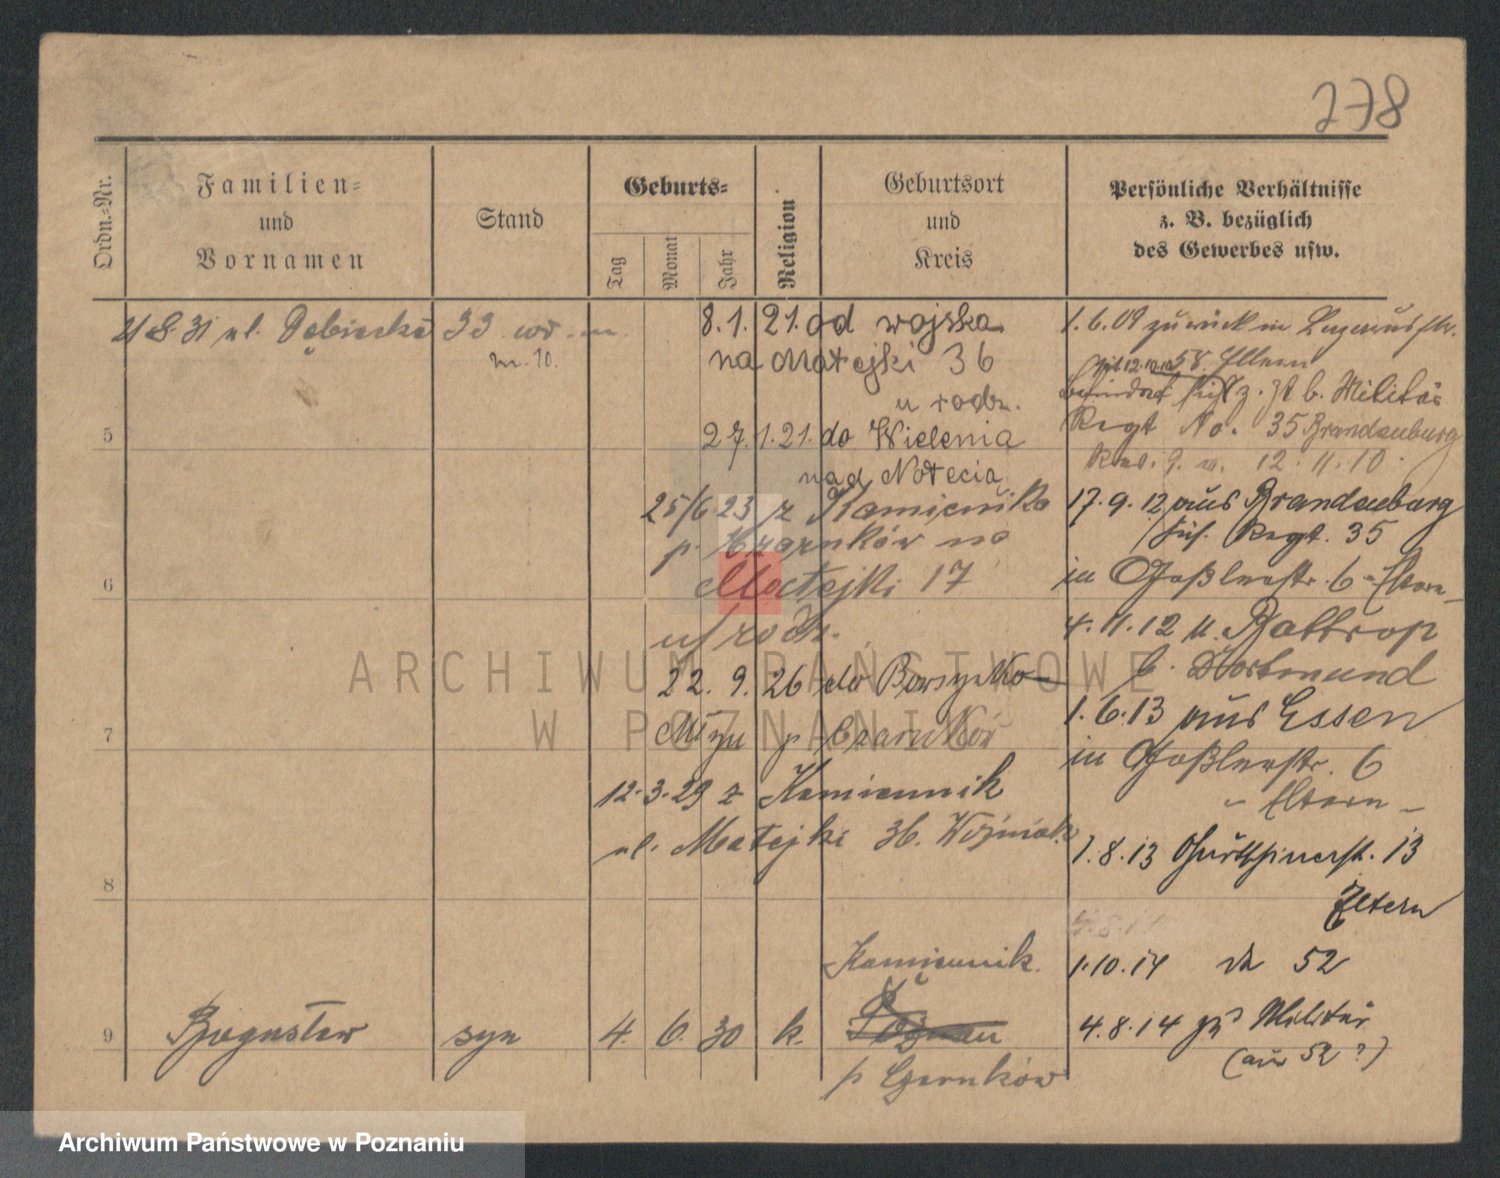 278
Ordn.=Nr.
Familien=
und
Vornamen
Stand
Geburts=
Tag
Monat
Jahr
Religion
Geburtsort
und
Kreis
Persönliche Verhältnisse
z. B. bezüglich
des Gewerbes usw.
31 ul. Dębiecka 33
m. 10.
8.1.21. od wojska
na Matejki 36
u rodz.
5
27.1.21. do Wielenia
nad Notecią
25/6 23 z Kamiennika
p. Czarnków na
6
Matejki 17
u/rodz.
22. 9. 26 do
7
p Czarnków
12.3.29 z Kamiennik
ul. Matejki 36. Woźniak
8
Kamiennik
9
Bogusław syn 4. 6. 30 k. Poznań
p Czarnków
1.6.09 zurück in
58. Eltern
z. Zt b. Militär
Regt No. 35 Brandenburg
12.11.10.
17.9.12 aus Brandenburg
Füs. Regt. 35
in Goßlerstr. 6 - Eltern -
4.11.12 n. Bottrop
b. Dortmund
1.6.13 aus Essen
in Goßlerstr. 6
- Eltern -
1.8.13 13
Eltern
1.10.14 52
4.8.14 zum Militär
(aus 52?)
ARCHIWUM PAŃSTWOWE
W POZNANIU
Archiwum Państwowe w Poznaniu